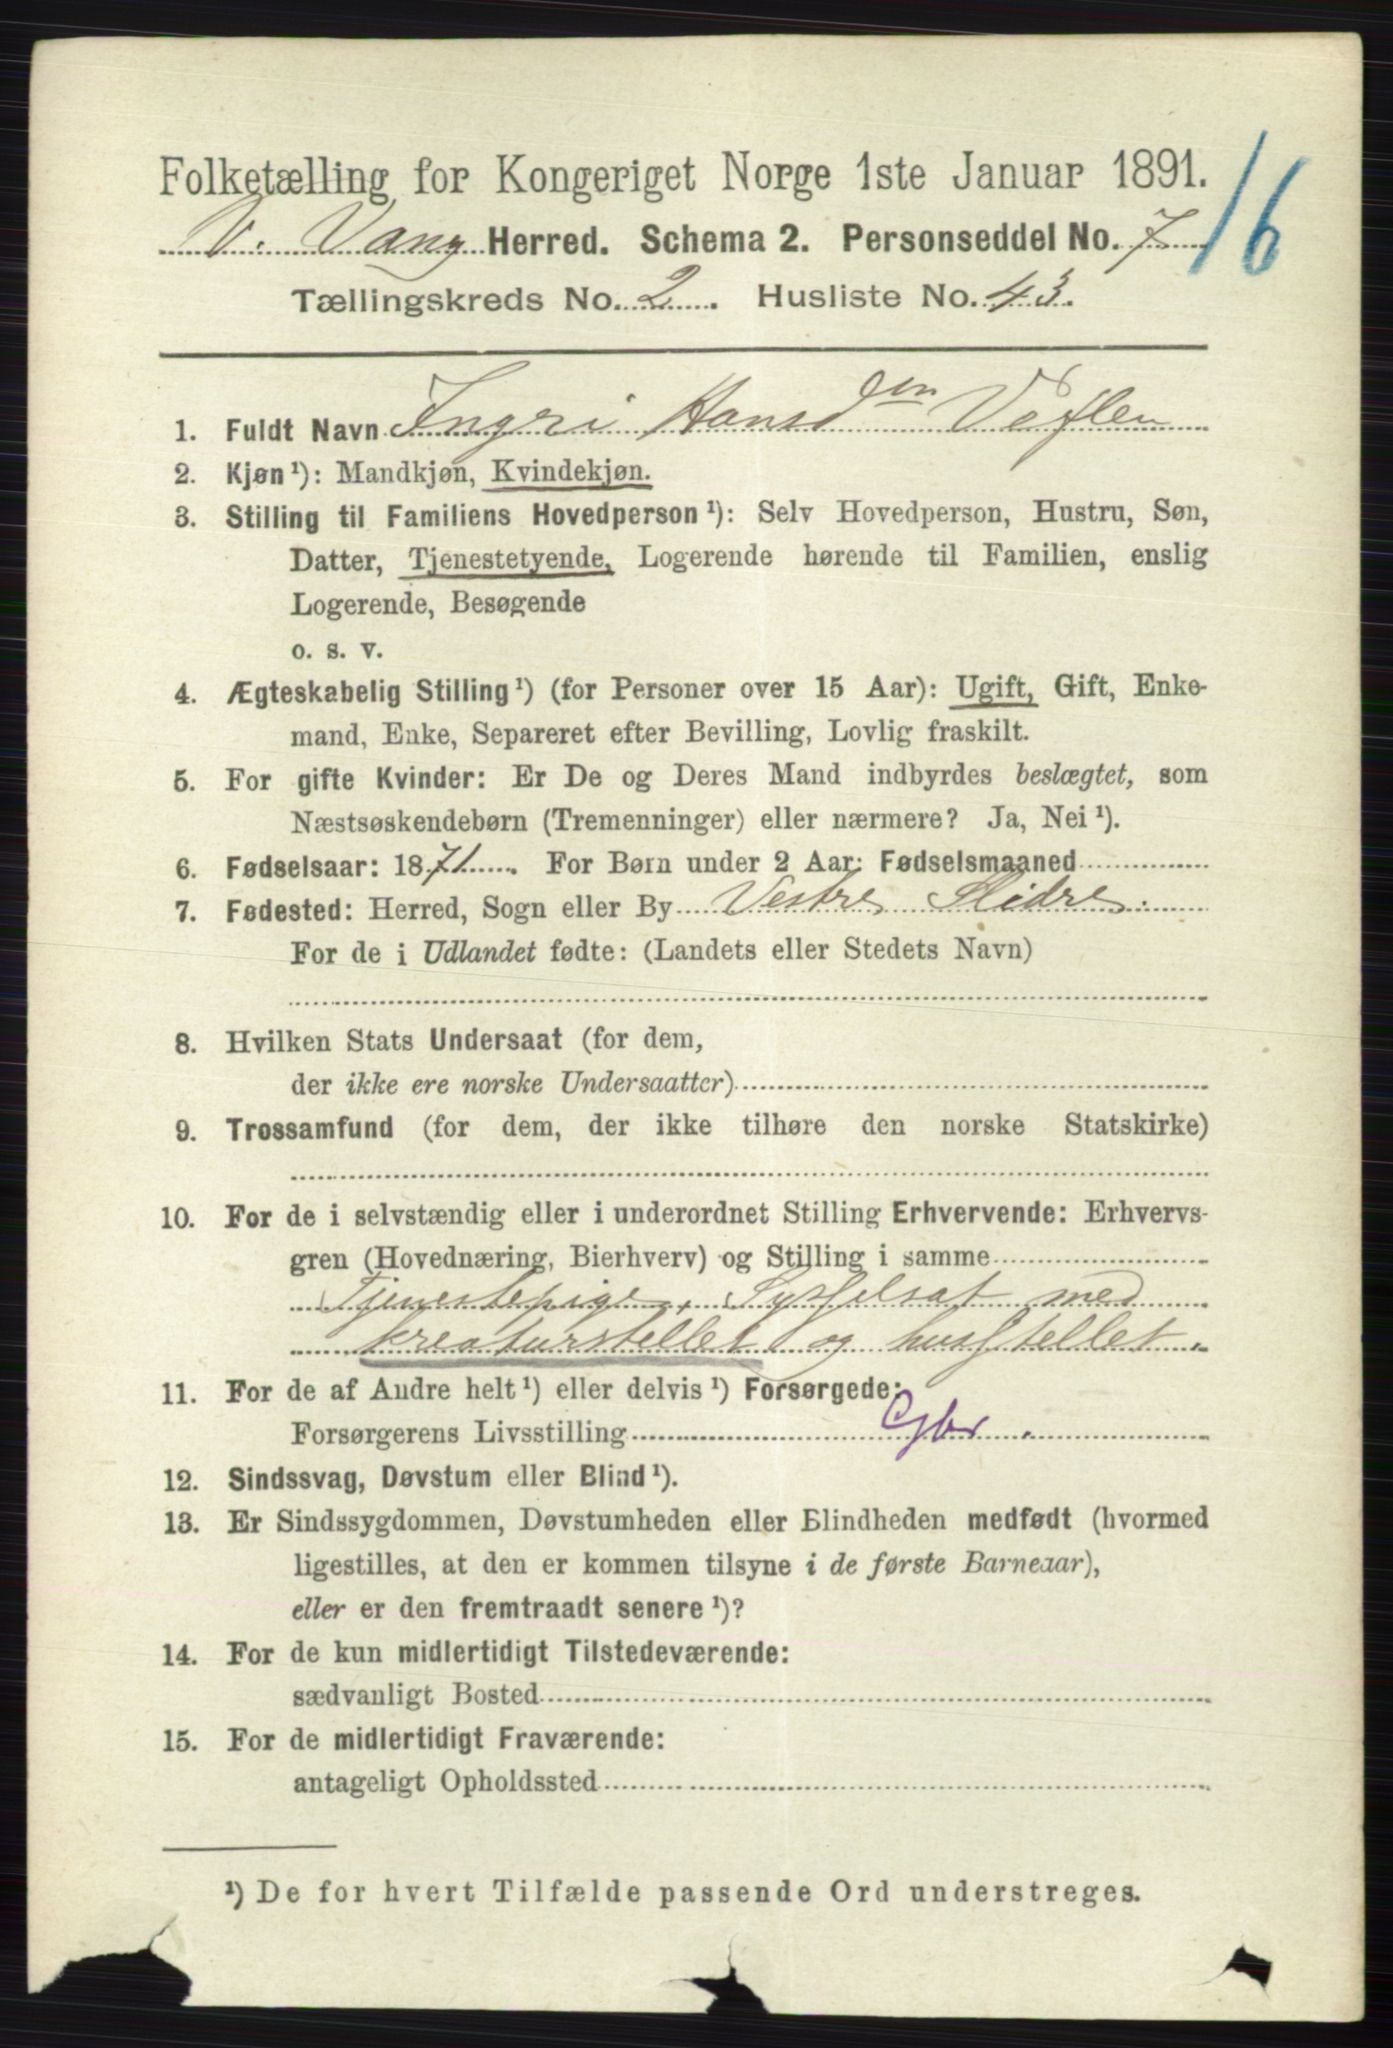 Folketælling for Kongeriget Norge 1ste Januar 1891.
16
V. Vang Herred. Schema 2. Personseddel No. 7
Tællingskreds No. 2. Husliste No. 43.
1. Fuldt Navn Ingri Hansd
2. Kjøn¹): Mandkjøn, Kvindekjøn.
3. Stilling til Familiens Hovedperson¹): Selv Hovedperson, Hustru, Søn,
Datter, Tjenestetyende, Logerende hørende til Familien, enslig
Logerende, Besøgende
o. s. v.
4. Ægteskabelig Stilling¹) (for Personer over 15 Aar): Ugift, Gift, Enke-
mand, Enke, Separeret efter Bevilling, Lovlig fraskilt.
5. For gifte Kvinder: Er De og Deres Mand indbyrdes beslægtet, som
Næstsøskendebørn (Tremenninger) eller nærmere? Ja, Nei¹).
6. Fødselsaar: 1871. For Børn under 2 Aar: Fødselsmaaned
7. Fødested: Herred, Sogn eller By Vestre Slidre.
For de i Udlandet fødte: (Landets eller Stedets Navn)
8. Hvilken Stats Undersaat (for dem,
der ikke ere norske Undersaatter)
9. Trossamfund (for dem, der ikke tilhøre den norske Statskirke)
10. For de i selvstændig eller i underordnet Stilling Erhvervende: Erhvervs-
gren (Hovednæring, Bierhverv) og Stilling i samme
Tjenestepige, Sysselsat med
kreaturstellet og husstellet.
11. For de af Andre helt¹) eller delvis¹) Forsørgede:
Forsørgerens Livsstilling Gbr.
12. Sindssvag, Døvstum eller Blind¹).
13. Er Sindssygdommen, Døvstumheden eller Blindheden medfødt (hvormed
ligestilles, at den er kommen tilsyne i de første Barneaar),
eller er den fremtraadt senere¹)?
14. For de kun midlertidigt Tilstedeværende:
sædvanligt Bosted
15. For de midlertidigt Fraværende:
antageligt Opholdssted
¹) De for hvert Tilfælde passende Ord understreges.